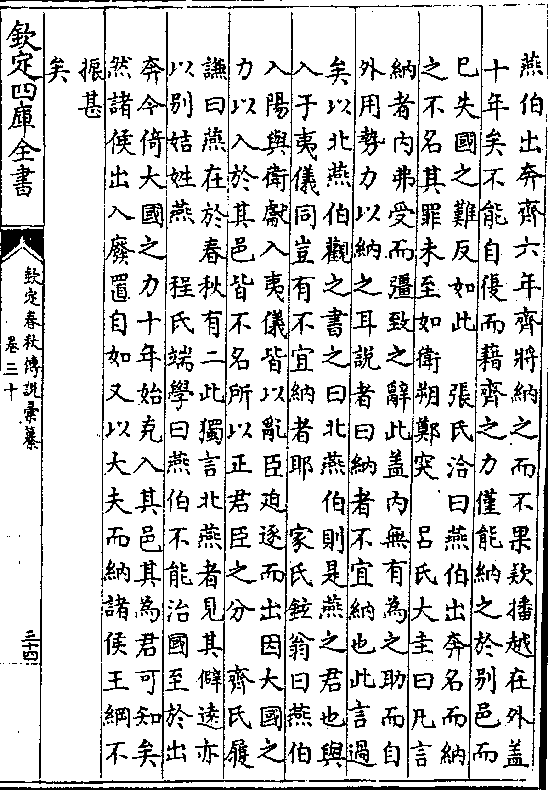 燕伯出奔齊六年齊將納之而不果欵播越在外蓋
十年矣不能自復而藉齊之力僅能納之於別邑而
已失國之難反如此　張氏洽曰燕伯出奔名而納
之不名其罪未至如衛朔鄭突　呂氏大圭曰凡言
納者内弗受而彊致之辭此蓋内無有為之助而自
外用勢力以納之耳説者曰納者不宜納也此言過
矣以北燕伯觀之書之曰北燕伯則是燕之君也與
入于夷儀同豈有不宜納者耶　家氏鉉翁曰燕伯
入陽與衛獻入夷儀皆以亂臣廹逐而出因大國之
力以入於其邑皆不名所以正君臣之分　齊氏履
謙曰燕在於春秋有二此獨言北燕者見其僻逺亦
以別姞姓燕　程氏端學曰燕伯不能治國至於出
奔今倚大國之力十年始克入其邑其為君可知矣
然諸侯出入廢置自如又以大夫而納諸侯王綱不
振甚
矣
欽定四庫全書
欽定春秋傳説彙纂
卷三十
三十四